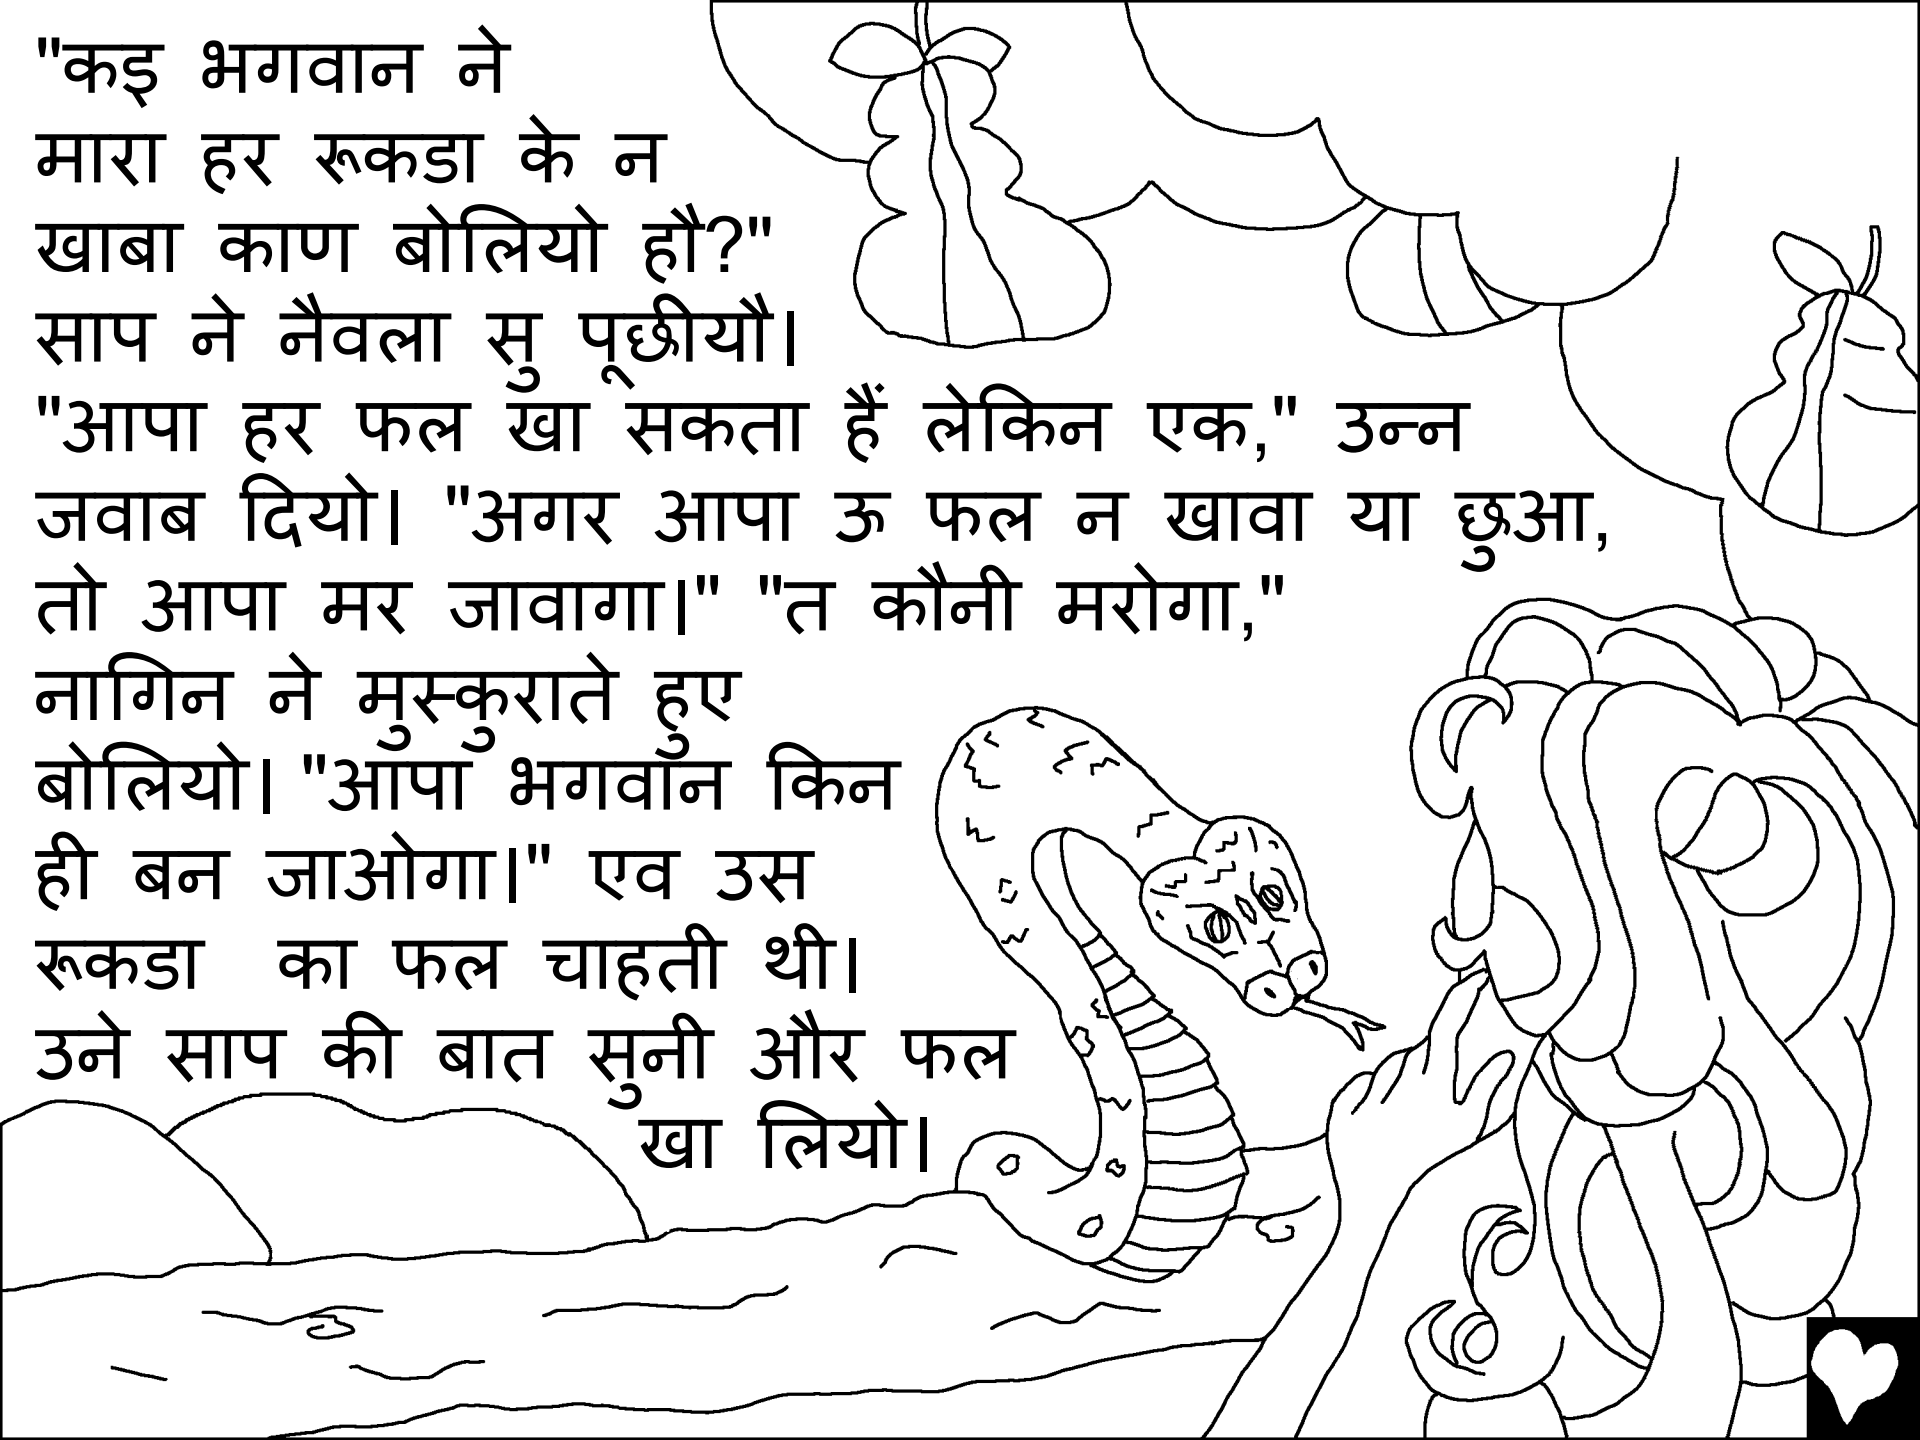 "कइ भगवान ने
मारा हर रूकडा के न
खाबा काण बोलियो हौ?"
साप ने नैवला सु पूछीयौ।
"आपा हर फल खा सकता हैं लेकिन एक," उन्न
जवाब दियो। "अगर आपा ऊ फल न खावा या छुआ,
तो आपा मर जावागा।" "त कौनी मरोगा,"
नागिन ने मुस्कुराते हुए
बोलियो। "आपा भगवान किन
ही बन जाओगा।" एव उस
रूकडा का फल चाहती थी।
उने साप की बात सुनी और फल
खा लियो।